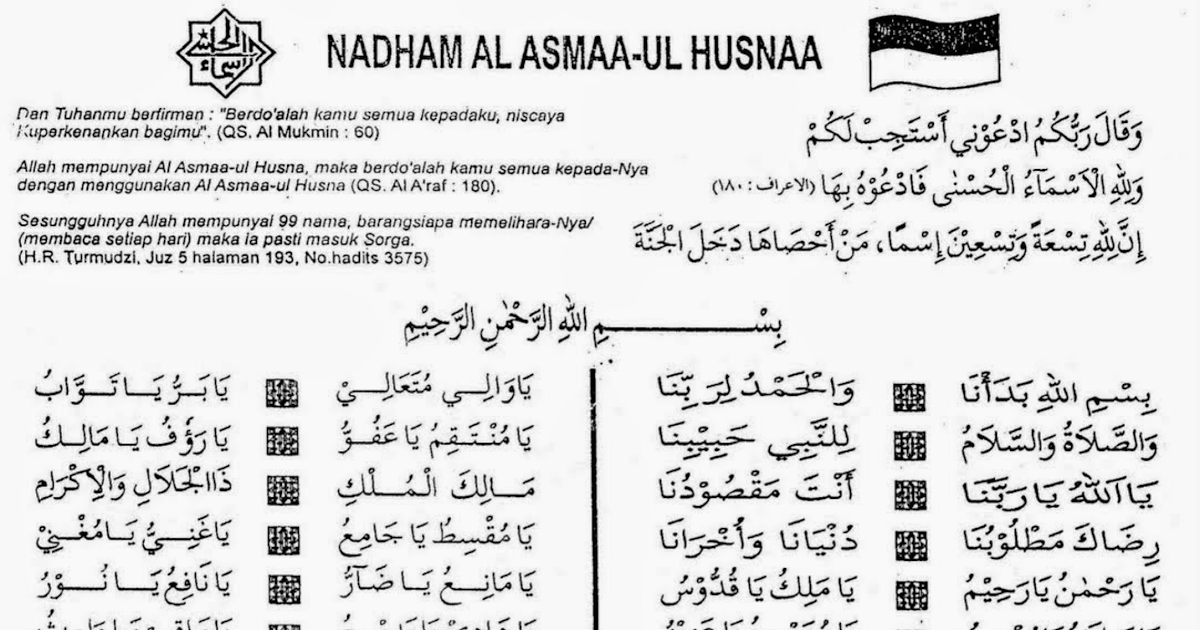 NADHAM AL ASMAA-UL HUSNAA
Dan Tuhanmu berfirman : "Berdo'alah kamu semua kepadaku, niscaya
Kuperkenankan bagimu". (QS. Al Mukmin : 60)
Allah mempunyai Al Asmaa-ul Husna, maka berdo'alah kamu semua kepada-Nya
dengan menggunakan Al Asmaa-ul Husna (QS. Al A'raf : 180).
Sesungguhnya Allah mempunyai 99 nama, barangsiapa memelihara-Nya/
(membaca setiap hari) maka ia pasti masuk Sorga.
(H.R. Turmudzi, Juz 5 halaman 193, No.hadits 3575)
وَقَالَ رَبُّكُمُ ادْعُوْنِي أَسْتَجِبْ لَكُمْ
وَلِلّٰهِ الْاَسْمَآءُ الْحُسْنٰى فَادْعُوْهُ بِهَا (الاعراف : ١٨٠)
إِنَّ لِلّٰهِ تِسْعَةً وَتِسْعِيْنَ إِسْمًا، مَنْ أَحْصَاهَا دَخَلَ الْجَنَّةَ
بِسْمِ اللهِ الرَّحْمٰنِ الرَّحِيْمِ
بِسْمِ اللهِ بَدَأْنَا وَالْحَمْدُ لِرَبِّنَا
وَالصَّلَاةُ وَالسَّلَامُ لِلنَّبِي حَبِيْبِنَا
يَا اَللهُ يَا رَبَّنَا أَنْتَ مَقْصُوْدُنَا
رِضَاكَ مَطْلُوْبُنَا دُنْيَانَا وَأُخْرَانَا
يَا رَحْمٰنُ يَا رَحِيْمُ يَا مَلِكُ يَا قُدُّوْسُ
يَا وَالِي مُتَعَالِيْ يَا بَرُّ يَا تَوَّابُ
يَا مُنْتَقِمُ يَا عَفُوُّ يَا رَؤُفُ يَا مَالِكُ
مَالِكَ الْمُلْكِ ذَاالْجَلَالِ وَالْإِكْرَامِ
يَا مُقْسِطُ يَا جَامِعُ يَا غَنِيُّ يَا مُغْنِيْ
يَا مَانِعُ يَا ضَآرُّ يَا نَافِعُ يَا نُوْرُ